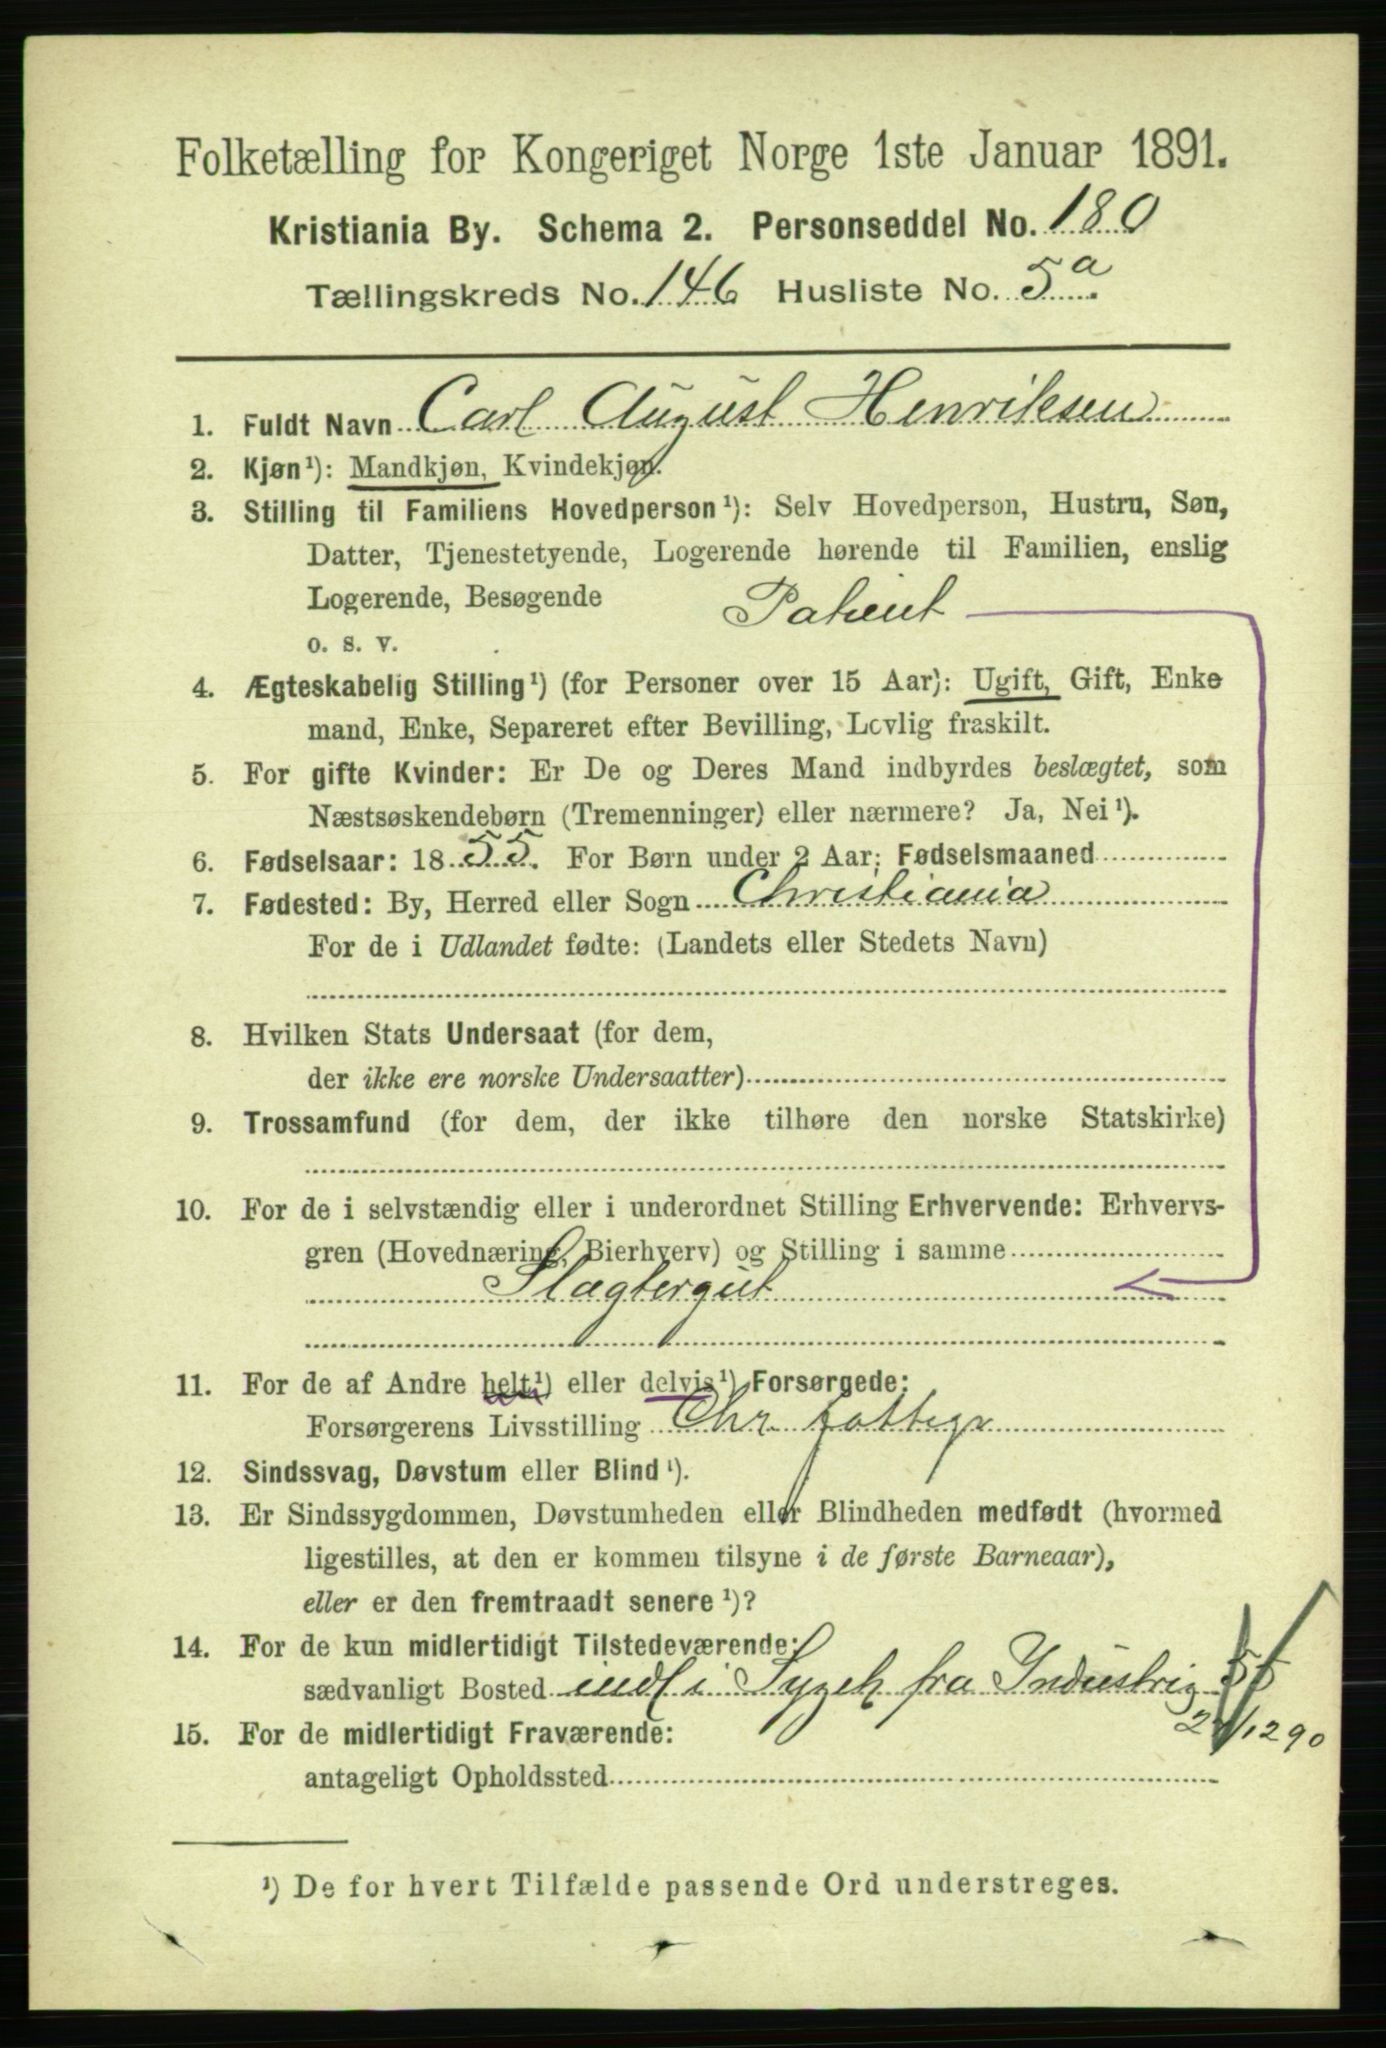 Folketælling for Kongeriget Norge 1ste Januar 1891.
Kristiania By. Schema 2. Personseddel No. 180
Tællingskreds No. 146 Husliste No. 5a
1. Fuldt Navn Carl August Henriksen
2. Kjøn¹): Mandkjøn, Kvindekjøn.
3. Stilling til Familiens Hovedperson¹): Selv Hovedperson, Hustru, Søn,
Datter, Tjenestetyende, Logerende hørende til Familien, enslig
Logerende, Besøgende Patient
o. s. v.
4. Ægteskabelig Stilling¹) (for Personer over 15 Aar): Ugift, Gift, Enke
mand, Enke, Separeret efter Bevilling, Lovlig fraskilt.
5. For gifte Kvinder: Er De og Deres Mand indbyrdes beslægtet, som
Næstsøskendebørn (Tremenninger) eller nærmere? Ja, Nei¹).
6. Fødselsaar: 1855. For Børn under 2 Aar: Fødselsmaaned
7. Fødested: By, Herred eller Sogn Christiania
For de i Udlandet fødte: (Landets eller Stedets Navn)
8. Hvilken Stats Undersaat (for dem,
der ikke ere norske Undersaatter)
9. Trossamfund (for dem, der ikke tilhøre den norske Statskirke)
10. For de i selvstændig eller i underordnet Stilling Erhvervende: Erhvervs-
gren (Hovednæring, Bierhverv) og Stilling i samme
Slagtergut
11. For de af Andre helt¹) eller delvis¹) Forsørgede:
Forsørgerens Livsstilling Chr. fattigv
12. Sindssvag, Døvstum eller Blind¹).
13. Er Sindssygdommen, Døvstumheden eller Blindheden medfødt (hvormed
ligestilles, at den er kommen tilsyne i de første Barneaar),
eller er den fremtraadt senere¹)?
14. For de kun midlertidigt Tilstedeværende:
sædvanligt Bosted indl i Sygeh fra Industrig 55
/12 90
15. For de midlertidigt Fraværende:
antageligt Opholdssted
¹) De for hvert Tilfælde passende Ord understreges.